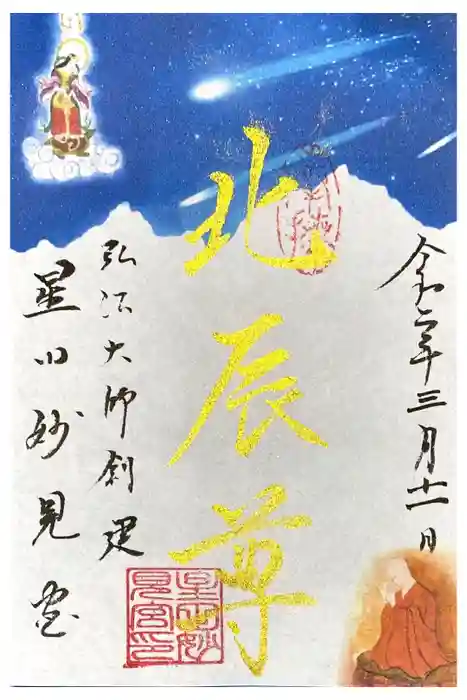 令和二年三月十一日
北辰尊
弘法大師創建
星田妙見宮
星田妙
見宮印